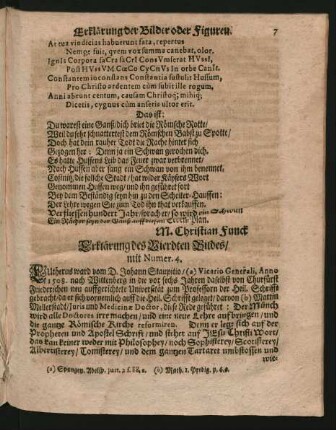 Erklärung der Bilder oder Figuren. 7
At tua vindicias habuerunt fata, repertus
Nempe suis, quem vox summa canebat, olor.
IgnIs Corpora saCra saCrI ConsVmserat HVssI,
Post HVssVM CœCo CyCnVs In orbe CanIt.
Constantem inconstans Constantia sustulit Hussum,
Pro Christo ardentem cùm subit ille rogum,
Anni abeunt centum, causam Christoq; mihiq;
Dicetis, cygnus cùm anseris ultor erit.
Das ist:
Du warest eine Ganß/dich briet die Römische Rotte/
Weil du sehr schnattertest dem Römischen Babst zu Spotte/
Doch hat dein rauher Todt die Rache hinter sich
Gezogen her: Denn ja ein Schwan gerochen dich.
Es hatte Hussens Leib das Feuer zwar verbrennet/
Nach Hussen aber sang ein Schwan von ihm benennet,
Costnitz die falsche Stadt/ hat wider Klöfers Wort
Genommen Hussen weg/ und ihn geführet fort
Bey dem Beständig seyn hin zu den Scheiter-Hauffen:
Der Lehre wegen Sie zum Tod ihn that verkauffen.
Verfliessen hundert Jahr/sprach er/ so wird ein Schwan
M. Christian Funck
Erklärung des Vierdten Bildes/
mit Numer. 4.
LUtherus ward vom D. Johann Staupitio/ (a) Vicario Generali, Anno
1508. nach Wittenberg in die vor sechs Jahren daselbst von Churfürst
Friedrichen neu auffgerichtete Universität zum Professorn der Heil. Schrifft
gebracht/da er sich vornemlich auff die Heil. Schrifft geleget/ darvon (b) Martin
Mellerstadt/ Juris und Medicinæ Doctor, diese Rede geführet: Der Münch
wird alle Doctores irre machen/ und eine neue Lehre auf bringen/ und
die gantze Römische Kirche reformiren. Denn er legt sich auf der
Propheten und Apostel Schrifft/ und stehet auf JEsu Christi Wort/
das kan keiner weder mit Philosophey/ noch Sophisterey/ Scotisterey/
Albertisterey/ Tomisterey/ und dem gantzen Tartaret umbstossen und
wie-
(a) Spangen. Adelsp. part. 2 f. 81. a. (b) Math. 1. Predig. p. 6. a.